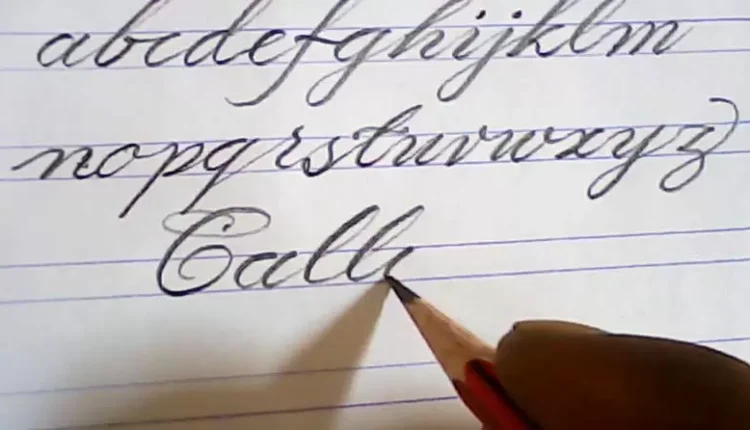 abcdefghijklm
nopqrstuvwxyz
Calli